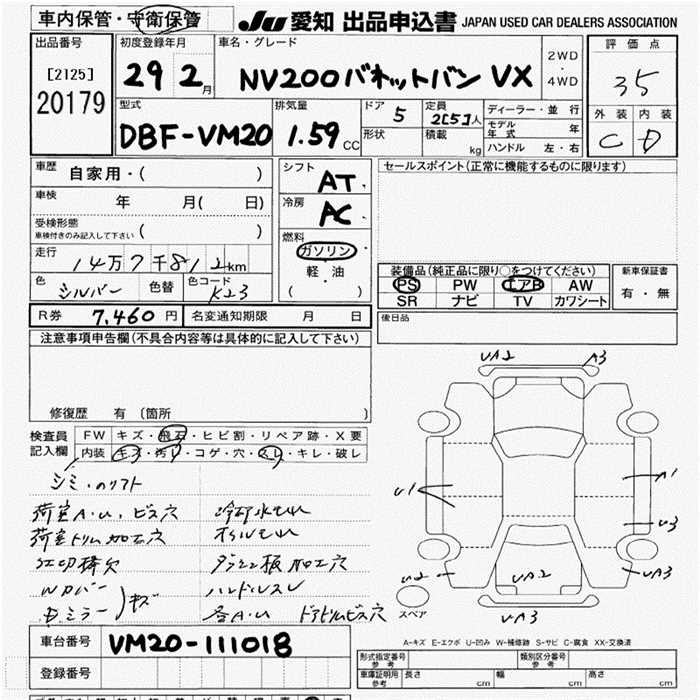 車内保管・守衛保管
JU 愛知 出品申込書 JAPAN USED CAR DEALERS ASSOCIATION
出品番号
[2125]
20179
初度登録年月
29 2月
車名・グレード
NV200バネットバン VX
2WD
4WD
評価点
3.5
外装 内装
C D
型式
DBF-VM20
排気量
1.59cc
ドア 5
形状
定員 2[5]人
積載 kg
ディーラー・並行
モデル年式 年
ハンドル 左・右
車歴
自家用・( )
車検 年 月( 日)
受検形態
車検付きのみ記入して下さい ( )
走行
14万7千812km
色 シルバー 色替 色コード K23
シフト
AT
冷房
AC
燃料
ガソリン
軽・油
( )
セールスポイント(正常に機能するものに限ります)
装備品(純正品に限り○をつけてください)
PS PW エアB AW
SR ナビ TV カワシート
新車保証書
有・無
R券 7,460円 名変通知期限 月 日
後日品
注意事項申告欄(不具合内容等は具体的に記入して下さい)
修復歴 有 (箇所 )
検査員記入欄
FW キズ・飛石・ヒビ割・リペア跡・X要
内装 キズ・汚レ・コゲ・穴・スレ・キレ・破レ
シミ・のリフト
荷室A・U、ビス穴 冷却水モレ
荷室トリム加工穴 オイルモレ
ダッシュ板加工穴
Wカバー ハンドルスレ
Dミラー )キズ
各A・U ドアトリムビス穴
UA2 A3
U1 A1
U3
U2 UA2 UA3
UA3
スペア
A-キズ E-エクボ U-凹み W-補修跡 S-サビ C-腐食 XX-交換済
車台番号 VM20-111018
登録番号
形式指定番号 参考 類別区分番号 参考
車庫証明用 参考 長さ cm 幅 cm 高さ cm